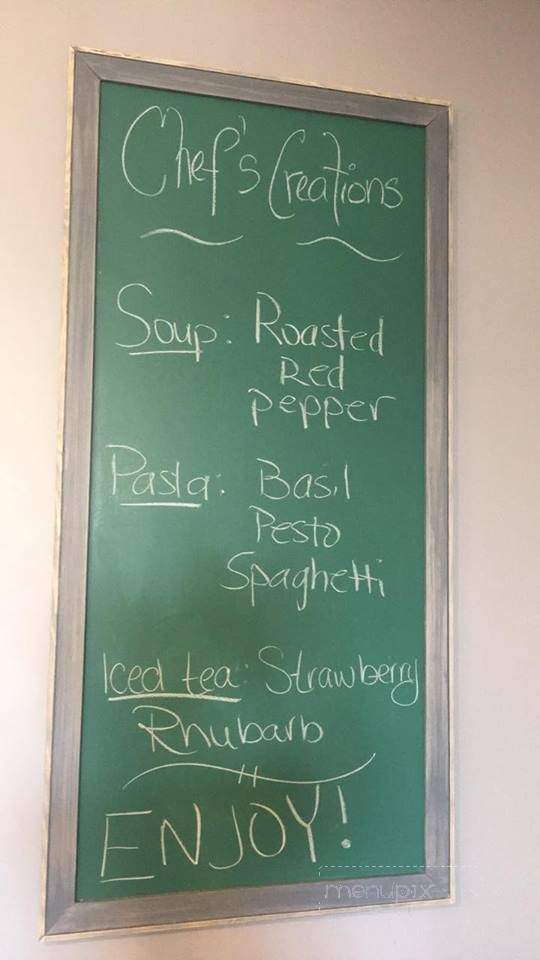 Chef's Creations
Soup: Roasted
Red
Pepper
Pasta: Basil
Pesto
Spaghetti
Iced tea: Strawberry
Rhubarb
ENJOY!
menupix